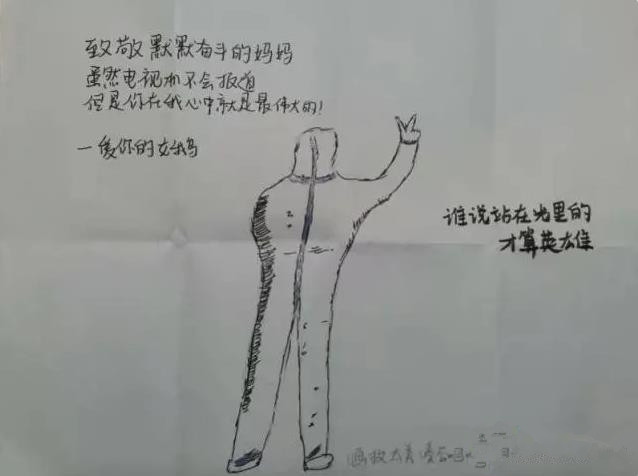 致敬默默奋斗的妈妈
虽然电视机不会报道
但是你在我心中就是最伟大的!
—爱你的女鹅
谁说站在光里的
才算英雄
画技太差